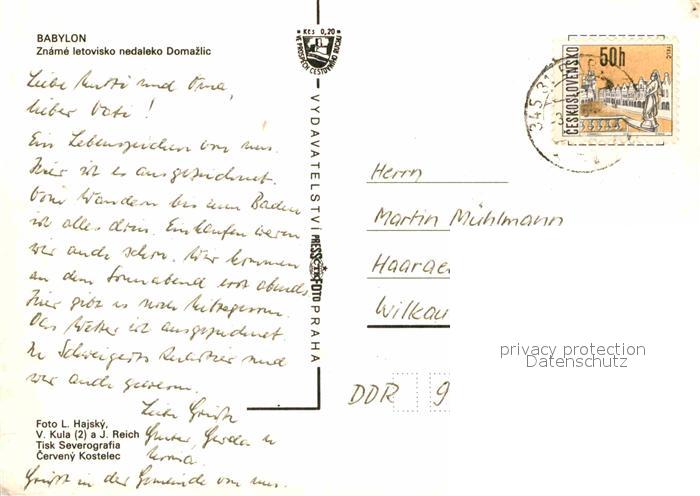 BABYLON
Známé letovisko nedaleko Domažlic
Liebe Mutti und Oma,
lieber Vati!
Ein Lebenszeichen von uns.
Hier ist es ausgezeichnet.
Vom Wandern bis zum Baden
ist alles drin. Einkaufen waren
wir auch schon. Wir kommen
an dem Sonnabend erst abends
Hier gibt es noch Mittagessen.
Das Wetter ist ausgezeichnet.
In Quartier sind
wir auch gewesen.
Liebe Grüße
Gunter, Gerda u
Grüßt in der Gemeinde von uns.
Foto L. Hajský,
V. Kula (2) a J. Reich
Tisk Severografia
Červený Kostelec
Kčs 0,20
VE PROSPĚCH CESTOVNÍHO RUCHU
VYDAVATELSTVÍ PRESSFOTO PRAHA
ČESKOSLOVENSKO
50h
345 31
Herrn
Martin Mühlmann
Haarae
Wilkau
DDR 9
privacy protection
Datenschutz